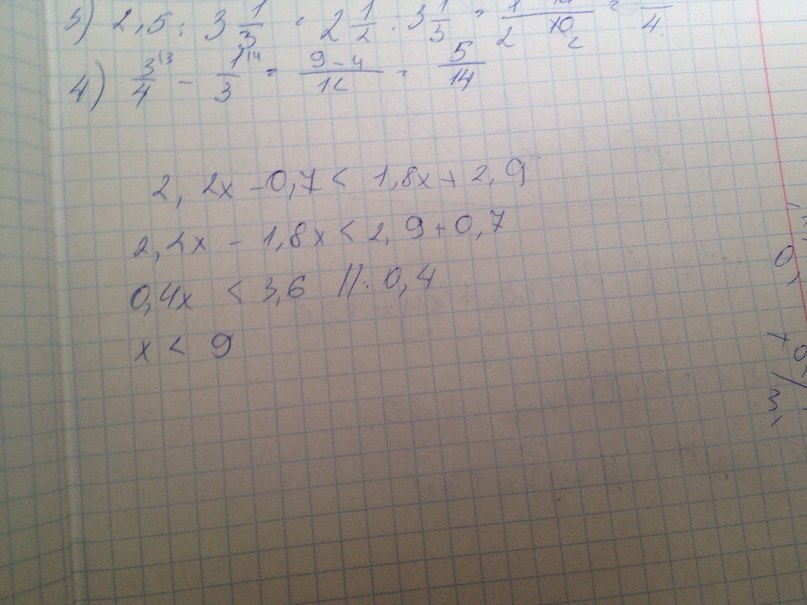 3) 2,5 : 3 1/3 = 2 1/2 : 3 1/3 =
4) 3/4 - 1/3 = 9-4/12 = 5/14
2,2x - 0,7 < 1,8x + 2,9
2,2x - 1,8x < 2,9 + 0,7
0,4x < 3,6 //: 0,4
x < 9